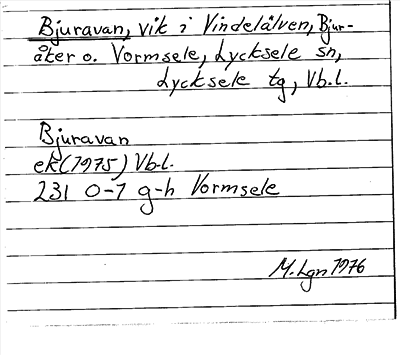 Bjuravan, vik i Vindelälven, Bjur-
åker o. Vormsele, Lycksele sn,
Lycksele tg, Vb.l.
Bjuravan
ek (1975) Vb.l.
231 0-1 g-h Vormsele
M. Lgn 1976